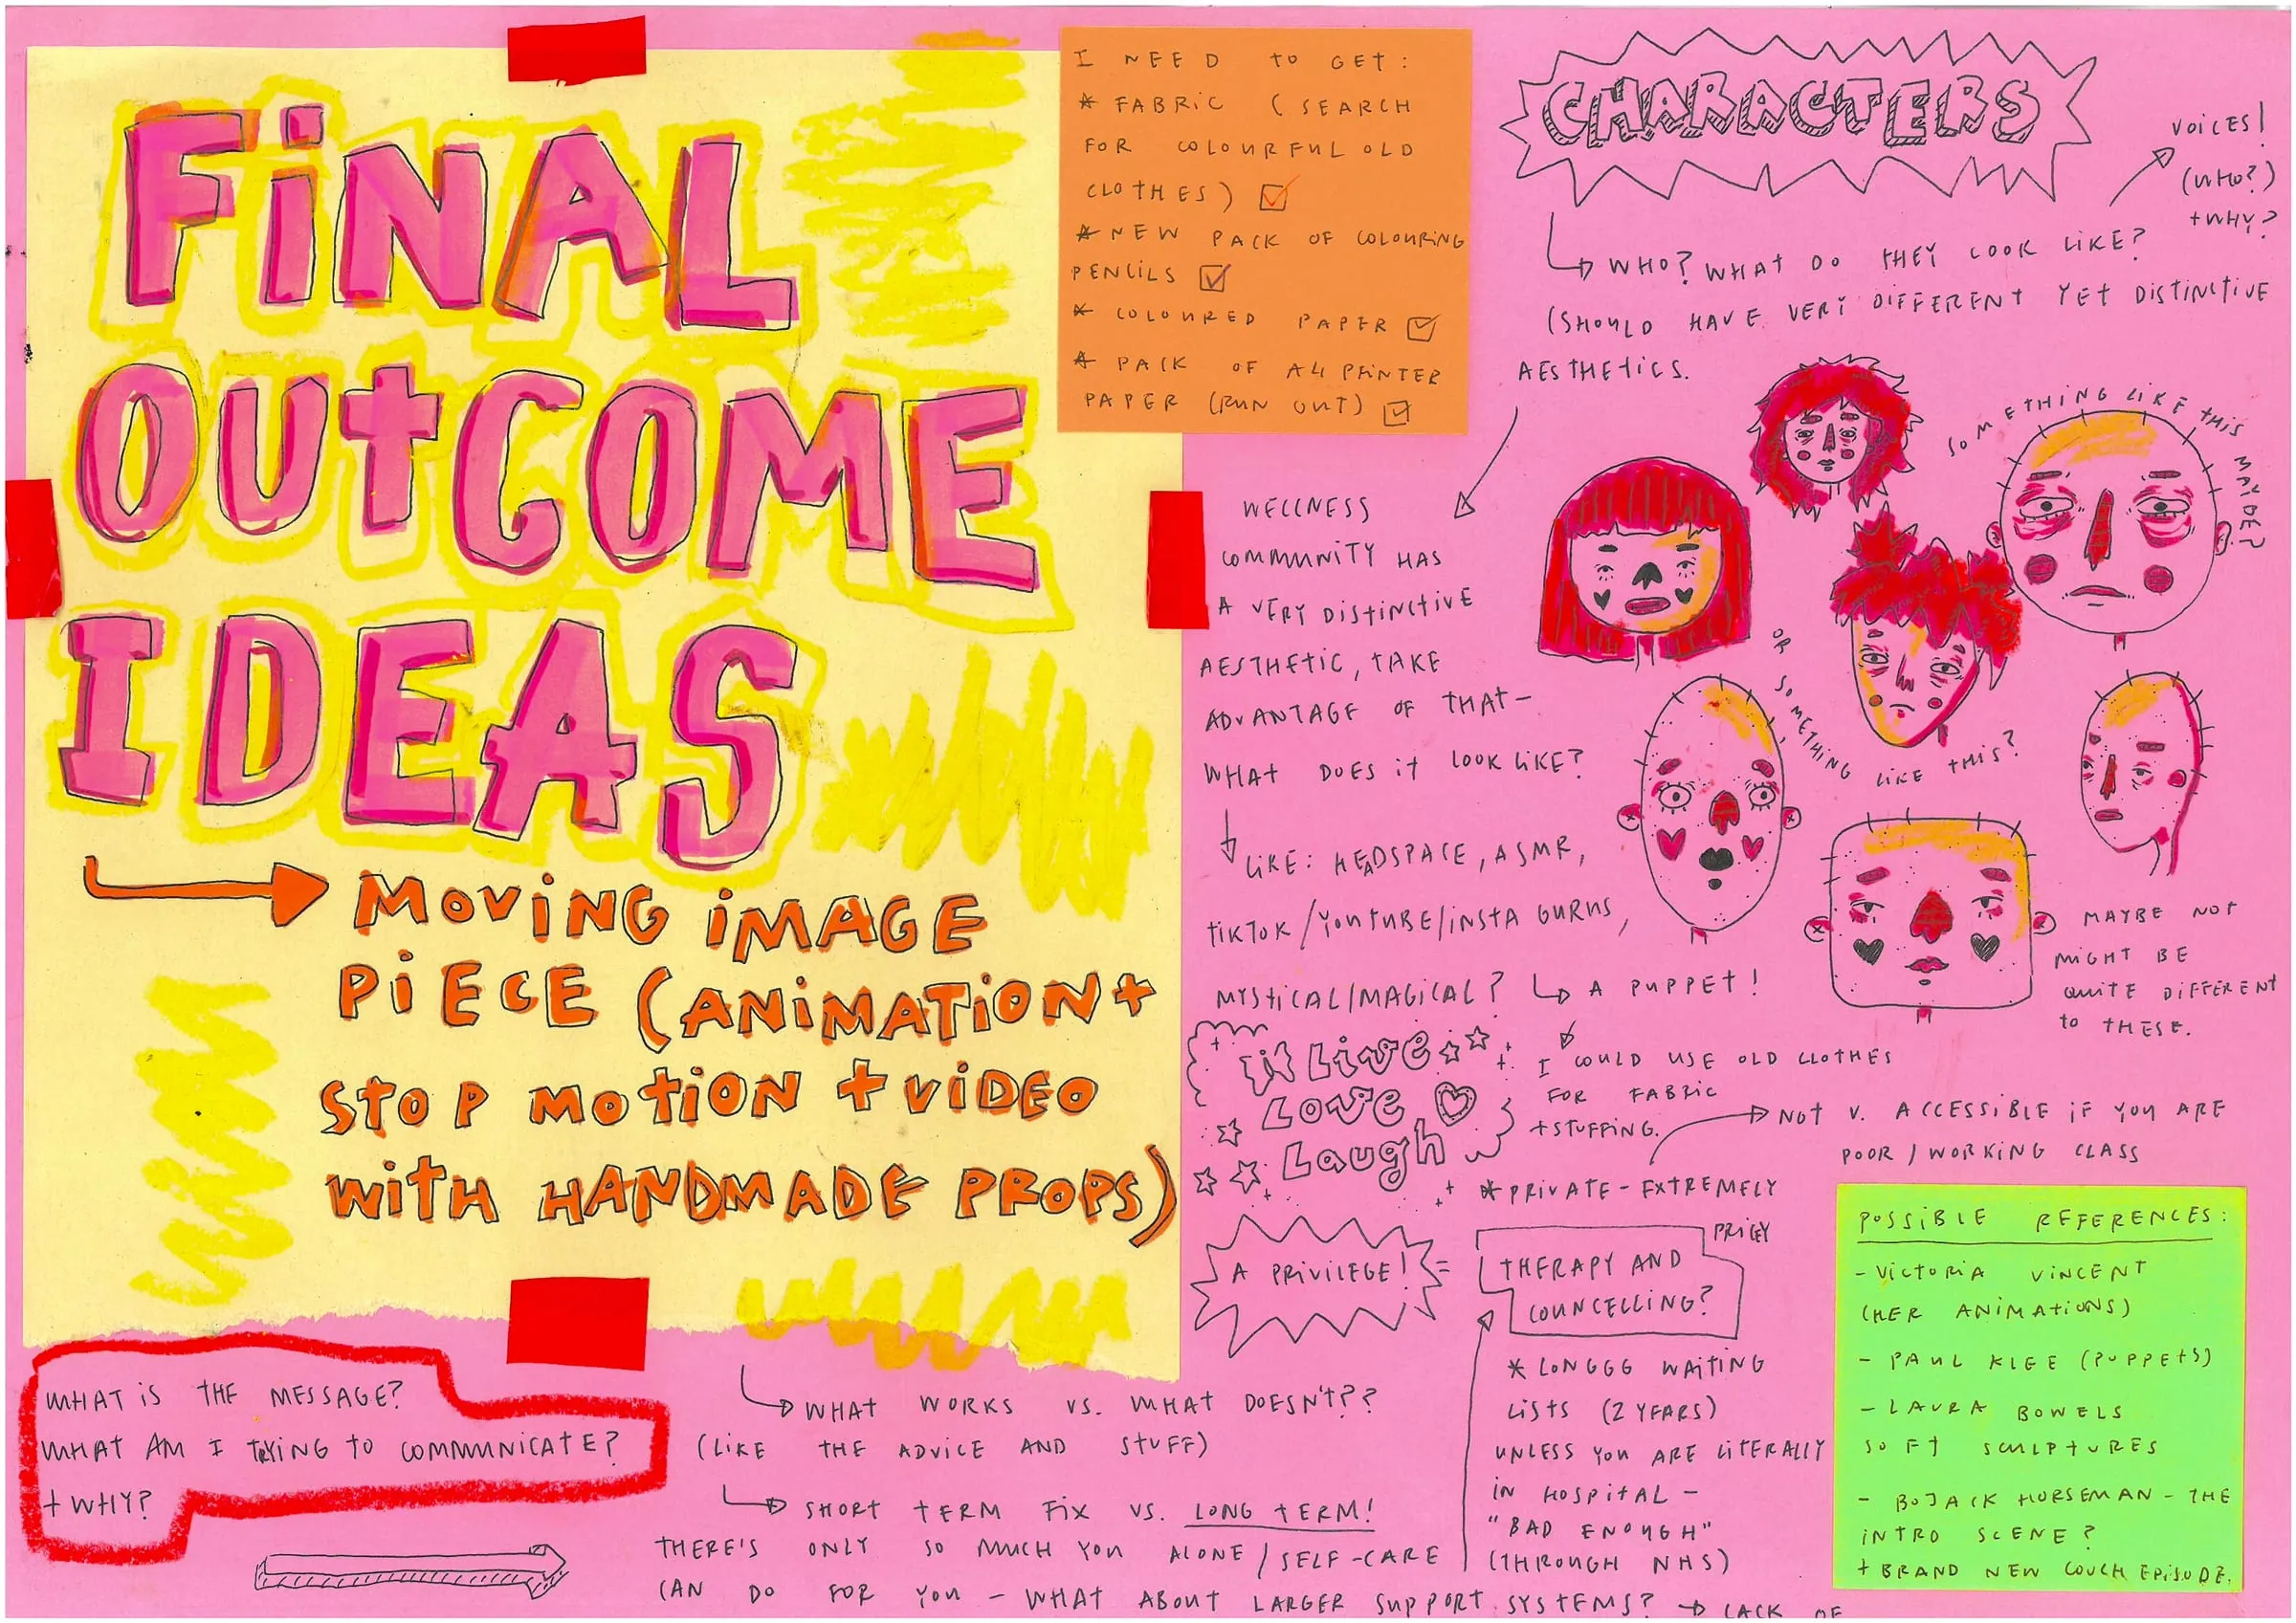 FiNAL
OUtCOME
IDEAS
MOViNG iMAGE
PiECE (ANiMATiON +
StOP MOtiON + ViDEO
WitH HANDMADE PROPS)
I NEED tO GEt:
* FABRiC (SEARCH
FOR COLOURFUL OLD
CLOtHES)
* NEW PACK OF COLOURiNG
PENCiLS
* COLOURED PAPER
* PACK OF A4 PRiNTER
PAPER (RUN OUT)
CHARACTERS
VOiCES!
(WHO?)
+WHY?
WHO? WHAT DO tHEY LOOK LiKE?
(SHOULD HAVE VERY DIFFERENt YEt DiStiNCtiVE
AESTHEtiCS.
SOMEtHiNG LiKE tHiS MAYBE?
OR SOMETHiNG LiKE tHiS?
MAYBE NOt
MiGHt BE
QUitE DiFFERENt
to tHESE.
WELLNESS
COMMUNitY HAS
A VERY DiStiNCtiVE
AESTHEtiC, tAKE
ADVANTAGE OF tHAt -
WHAt DOES it LOOK LiKE?
LiKE: HEADSPACE, ASMR,
tiKTOK/YOUTUBE/iNStA GURUS,
MYStiCAL/MAGiCAL?
A PUPPEt!
I COULD USE OLD CLOtHES
FOR FABRiC
+StUFFiNG.
Live
Love
Laugh
* PRiVATE - EXtREMELY
PRiCEY
NOt V. ACCESSiBLE iF YOU ARE
POOR / WORKiNG CLASS
A PRiViLEGE! =
tHERAPY AND
COUNCELLiNG?
* LONGGG WAitiNG
LiStS (2 YEARS)
UNLESS YOU ARE LitERALLY
iN HOSPitAL -
"BAD ENOUGH"
(tHROUGH NHS)
POSSiBLE REFERENCES:
- ViCtORiA ViNCENt
(HER ANiMAtiONS)
- PAUL KLEE (PUPPEtS)
- LAURA BOWELS
SOFt SCULPtURES
- BOJACK HORSEMAN - tHE
iNtRO SCENE?
+ BRAND NEW COUCH EPiSODE.
WHAt iS tHE MESSAGE?
WHAt AM I tRYiNG tO COMMUNiCAtE?
+ WHY?
WHAt WORKS VS. WHAt DOESN't??
(LiKE tHE ADViCE AND StUFF)
SHORt tERM FiX VS. LONG tERM!
tHERE'S ONLY SO MUCH YOU ALONE / SELF-CARE
CAN DO FOR YOU - WHAt ABOUt LARGER SUPPORt SYStEMS? → LACK OF